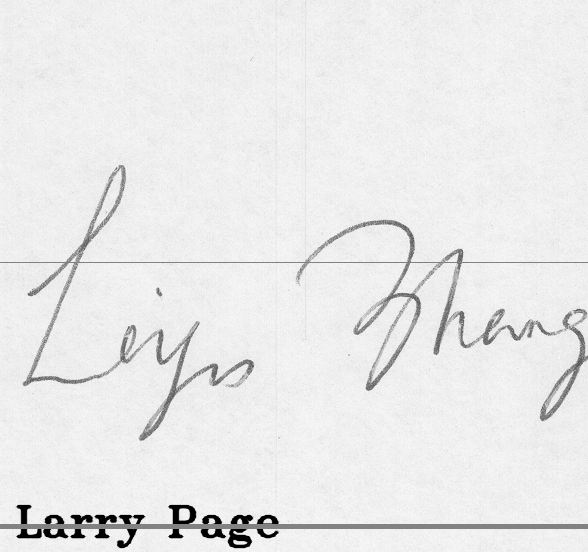 Leiyu Zhang
Larry Page